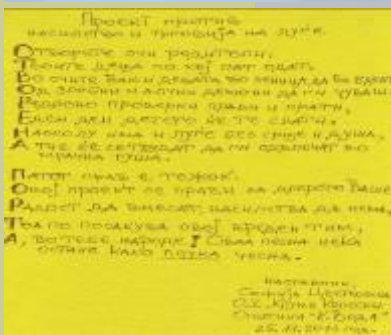 Проект против
насилство и трговија на луѓе.
Отворете очи родители,
Твоите деца по кој пат одат.
Во очите ваши децата во
Од злобни и алчни да ги чуваш
Редовно проверки прави и прати,
Еден ден детето ќе те сфати.
Наоколу има и луѓе без срце и душа,
А тие ќе се трудат да ги одвлечат во
мрачна туша.
Патот прав е тежок.
Овој проект се прави за доброто ваше
Радост да внесат, насилства да нема,
Тоа го посакува овој вреден тим,
А, во тебе народе! Оваа песна нека
остане како чесма.
наставник,
Цветковска
О.У. „Кузман
Општина "К. Вода"
25.11.2011 год.